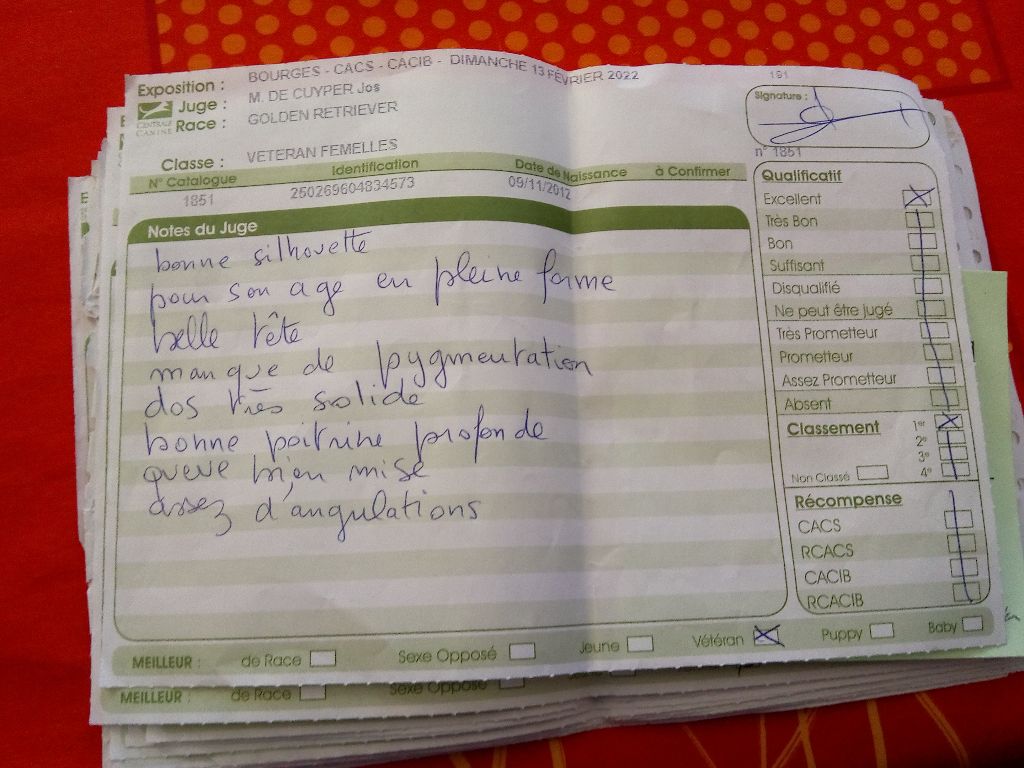 Exposition : BOURGES - CACS - CACIB - DIMANCHE 13 FÉVRIER 2022
Juge : M. DE CUYPER Jos
Race : GOLDEN RETRIEVER
CENTRALE CANINE
191
Signature :
n° 1851
Classe : VETERAN FEMELLES
N° Catalogue Identification Date de Naissance à Confirmer
1851 250269604834573 09/11/2012
Notes du Juge
bonne silhouette
pour son age en pleine forme
belle tête
manque de pygmentation
dos très solide
bonne poitrine profonde
queue bien mise
assez d'angulations
Qualificatif
Excellent
Très Bon
Bon
Suffisant
Disqualifié
Ne peut être jugé
Très Prometteur
Prometteur
Assez Prometteur
Absent
Classement
1er
2e
3e
4e
Non Classé
Récompense
CACS
RCACS
CACIB
RCACIB
MEILLEUR : de Race Sexe Opposé Jeune Vétéran Puppy Baby
MEILLEUR : de Race Sexe Opposé